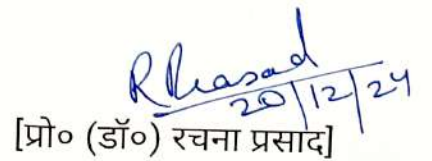 R Prasad
20/12/24
[प्रो० (डॉ०) रचना प्रसाद]